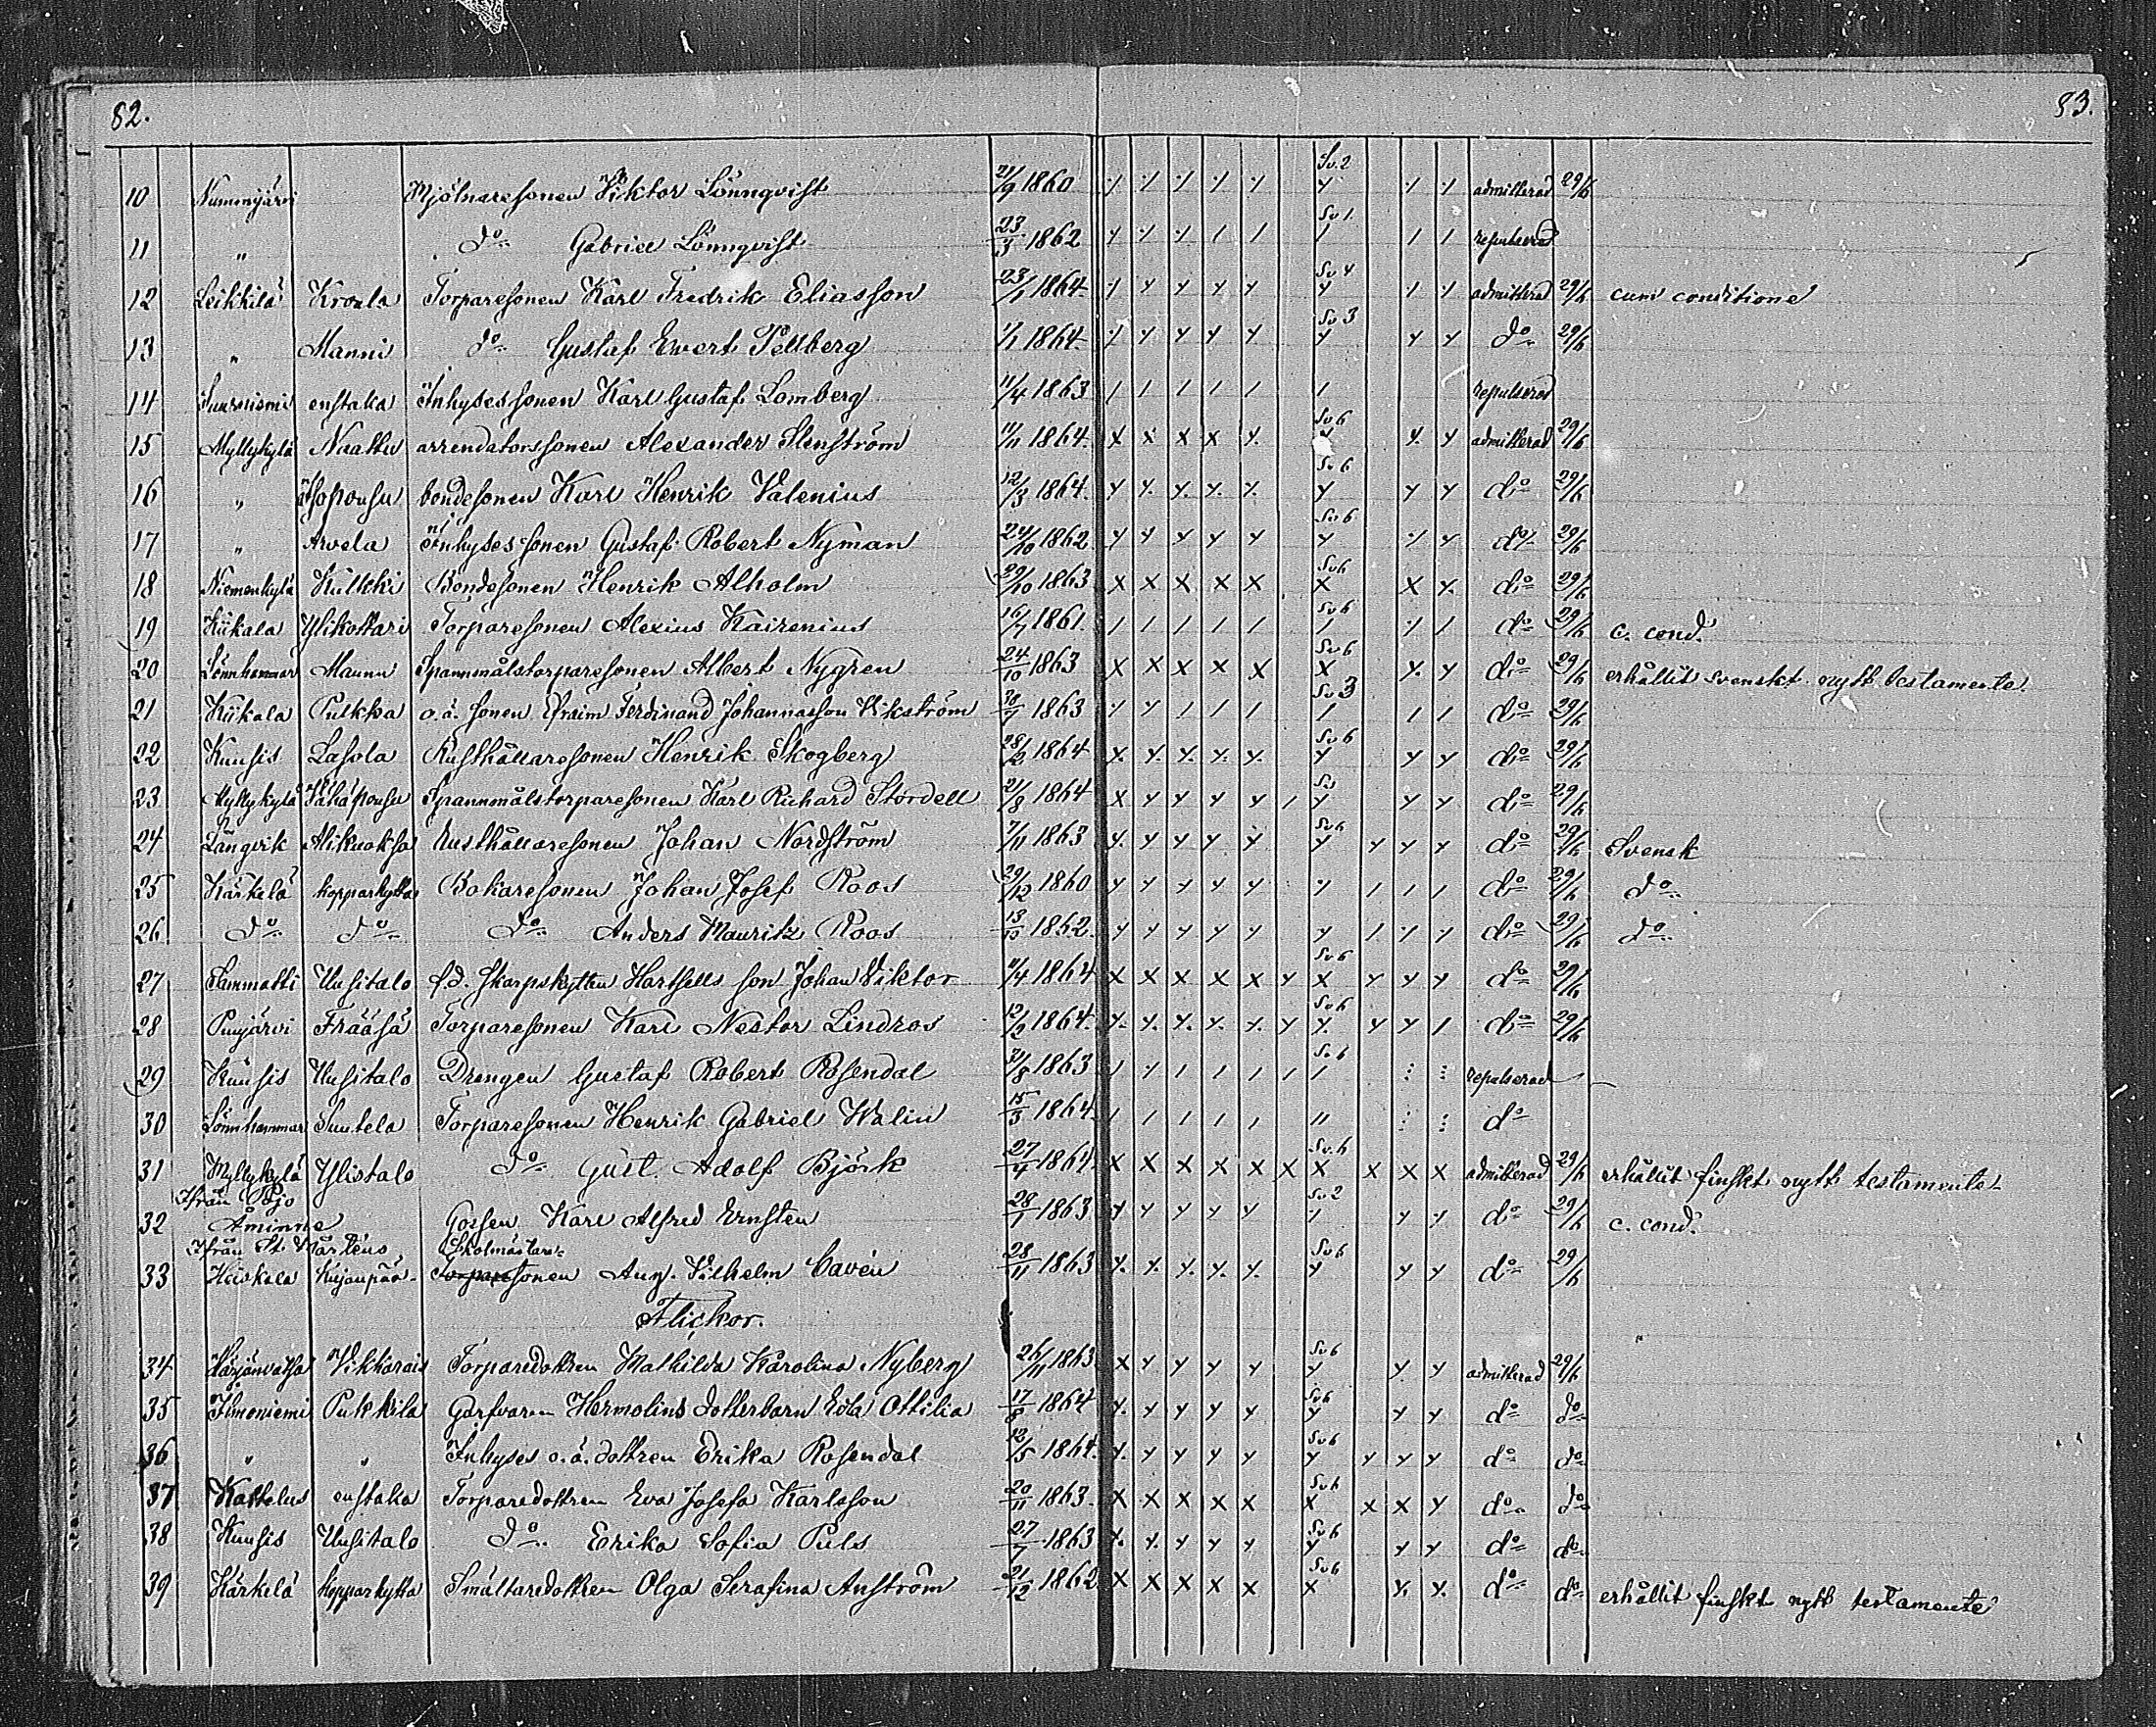 82. 83.
10 Nummjärvi Mjölnaresonen Viktor Lönnqvist 21/9 1860 Sv. 2 admitterad 29/6
11 " do Gabriel Lönnqvist 23/3 1862 Sv 1 repulserad
12 Leikkilä Kroula Torparesonen Karl Fredrik Eliasson 23/1 1864 Sv 4 admitterad 29/6 cum conditione
13 " Manni do Gustaf Ewert Fellberg 1/1 1864 Sv 3 do 29/6
14 Suurniemi enstaka Inhysessonen Karl Gustaf Lomberg 11/4 1863 repulserad
15 Myllykylä Nuattu arrendatorssonen Alexander Stenström 11/11 1864 Sv 6 admitterad 29/6
16 " Isopousu bondesonen Karl Henrik Valenius 12/3 1864 Sv 6 do 29/6
17 " Arvela Inhysessonen Gustaf Robert Nyman 24/10 1862 Sv 6 do 29/6
18 Niemenkylä Kulkki Bondesonen Henrik Alholm 29/10 1863 Sv 6 do 29/6
19 Kiikala Ylikottari Torparesonen Alexius Kairenius 16/7 1861 Sv 6 do 29/6 c. cond.
20 Lönnhammar Maunu Spannmålstorparesonen Albert Nygren 24/10 1863 Sv 6 do 29/6 erhållit svenskt nytt testamente.
21 Kiikala Pulkka o.ä. sonen Efraim Ferdinand Johannasson Vikström 30/7 1863 Sv 3 do 29/6
22 Kuusis Lasola Rusthållaresonen Henrik Skogberg 28/2 1864 Sv 6 do 29/6
23 Myllykylä Vähäpousu Spannmålstorparesonen Karl Richard Stordell 21/8 1864 Sv do 29/6
24 Långvik Alikuoksa Rusthållaresonen Johan Nordström 7/11 1863 Sv 6 do 29/6 Svensk
25 Kärkelä kopparhytta Bokaresonen Johan Josef Roos 29/12 1860 do 29/6 do
26 do do do Anders Mauritz Roos 13/10 1862 do 29/6 do
27 Sammatti Uusitalo f.d. skarpskytten Hartzells son Johan Viktor 11/4 1864 Sv 6 do 29/6
28 Puujärvi Frääsä Torparesonen Karl Nestor Lindros 12/2 1864 Sv 6 do 29/6
29 Kuusis Uusitalo Drengen Gustaf Robert Rosendal 31/8 1863 Sv 6 repulserad
30 Lönnhammar Suutela Torparesonen Henrik Gabriel Walin 15/3 1864 do
31 Myllykylä Ylistalo do Gust. Adolf Björk 27/4 1864 Sv. 6 admitterad 29/6 erhållit finskt nytt testamente
Ifrån Pojo
32 Åminne Gossen Karl Alfred Ernsten 29/7 1863 Sv 2 do 29/6 c. cond.
Ifrån St. Mårtens Skolmästare-
33 Heiskala Kujanpää Torparesonen Aug. Vilhelm Cavén 28/11 1863 Sv 6 do 29/6
Flickor.
34 Harjanvatsa Vikkarais Torparedottren Mathilda Karolina Nyberg 26/11 1863 Sv 6 admitterad 29/6
35 Ilmoniemi Pukkila Garfvaren Hermolins dotterbarn Eda Ottilia 17/8 1864 Sv 6 do do
36 " " Inhyses o.ä. dottren Erika Rosendal 12/5 1864 Sv 6 do do
37 Kattelus enstaka Torparedottren Eva Josefa Karlsson 20/11 1863 Sv 6 do do
38 Kuusis Uusitalo do Erika Sofia Puls 27/7 1863 Sv 6 do do
39 Kärkelä kopparhytta Smältaredottren Olga Serafina Anström 21/12 1862 Sv 6 do do erhållit finskt nytt testamente